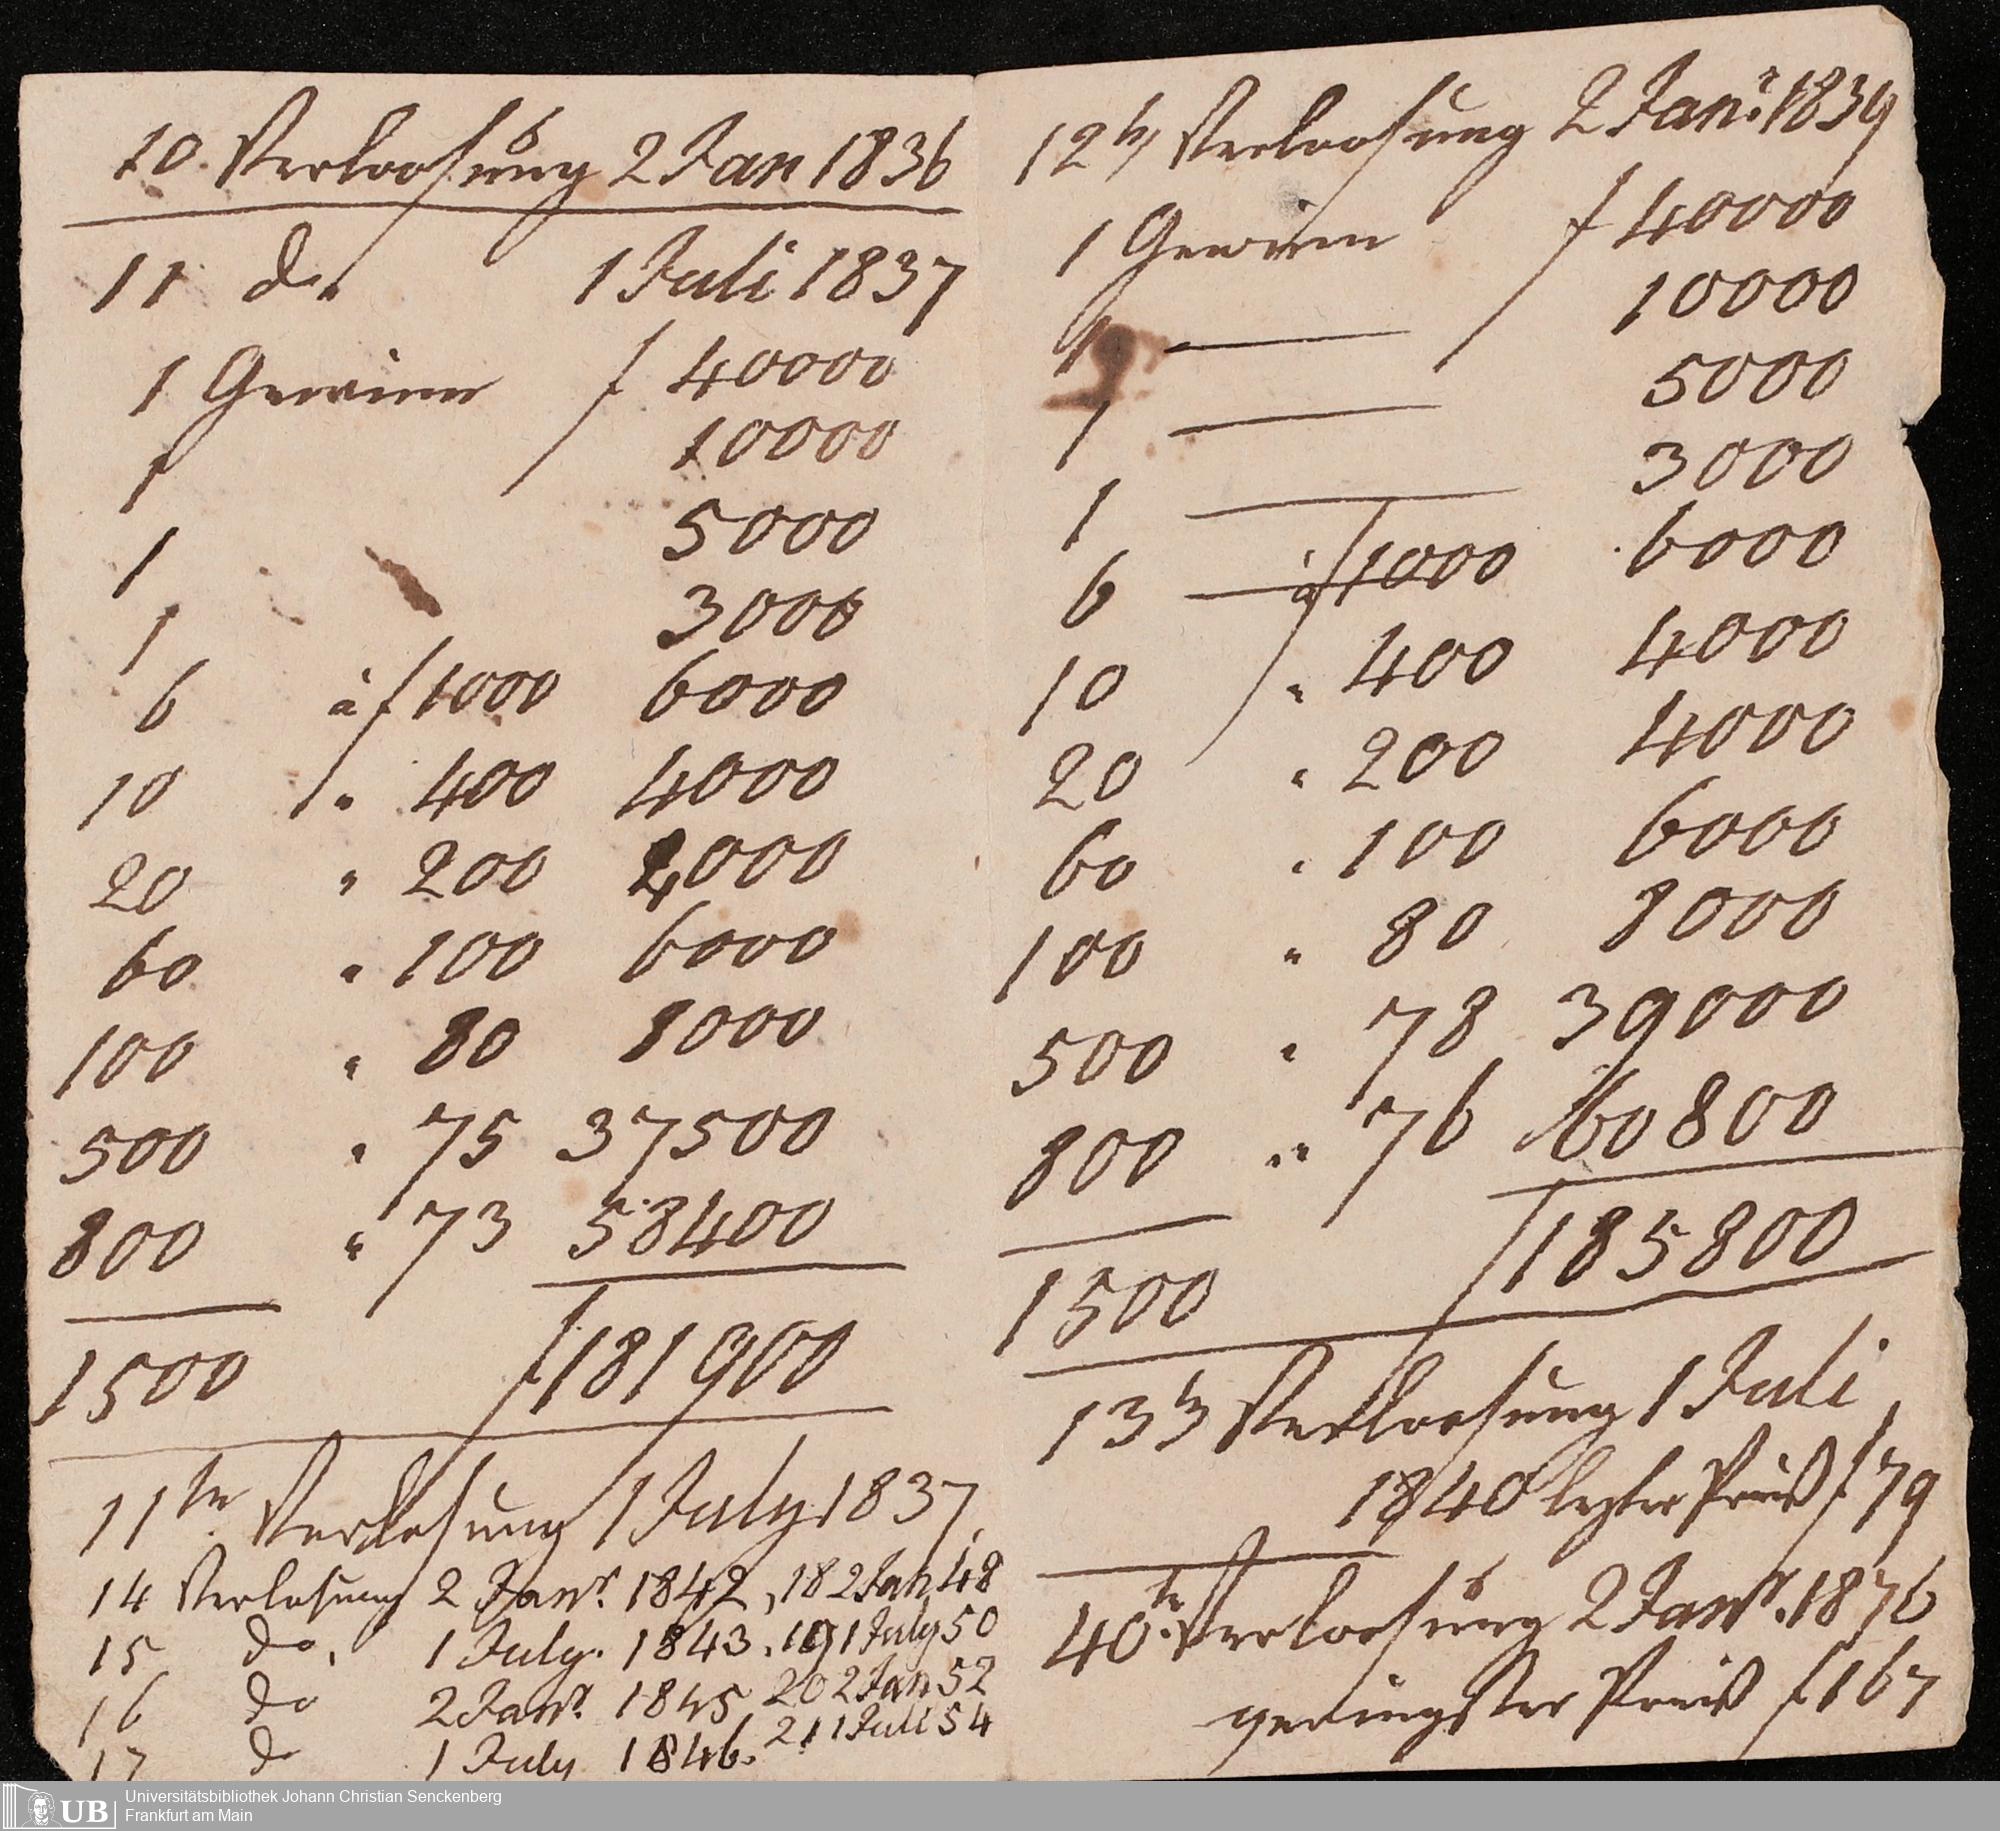 10. Verloosung 2 Jan 1836
11 do 1 Juli 1837
1 Gewinn f 40000
1 10000
1 5000
1 3000
6 à f 1000 6000
10 " 400 4000
20 " 200 4000
60 " 100 6000
100 " 80 8000
500 " 75 37500
800 " 73 58400
1500 f 181900
11te Verlosung 1 July 1837.
14 Verlosung 2 Janr. 1842, 18 2 Jan 48
15 do. 1 July. 1843. 19 1 July 50
16 do 2 Janr. 1845 20 2 Jan 52
17 do 1 July 1846. 21 1 Juli 54
12te Verloosung 2 Janr. 1839
1 Gewinn f 40000
1 — 10000
1 — 5000
1 — 3000
6 — à f 1000 6000
10 " 400 4000
20 " 200 4000
60 " 100 6000
100 " 80 8000
500 " 78 39000
800 " 76 60800
1500 f 185800
13te Verloosung 1 Juli
1840 lezter Preiß f 79
40te Verloosung 2 Janr. 1876
geringster Preiß f 167
UB Universitätsbibliothek Johann Christian Senckenberg
Frankfurt am Main